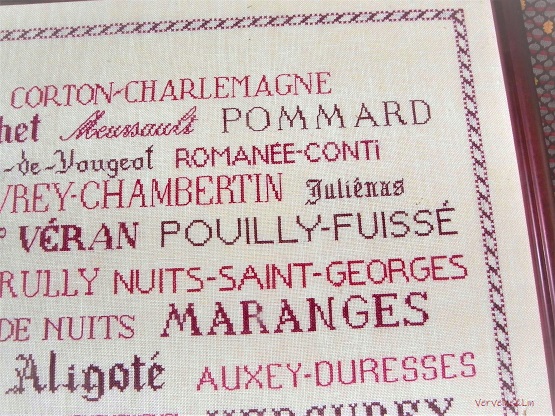 CORTON-CHARLEMAGNE
het Meursault POMMARD
-de-Vougeot ROMANÉE-CONTi
VREY-CHAMBERTIN Juliénas
VÉRAN POUILLY-FUISSÉ
RULLY NUITS-SAINT-GEORGES
DE NUITS MARANGES
Aligoté AUXEY-DURESSES